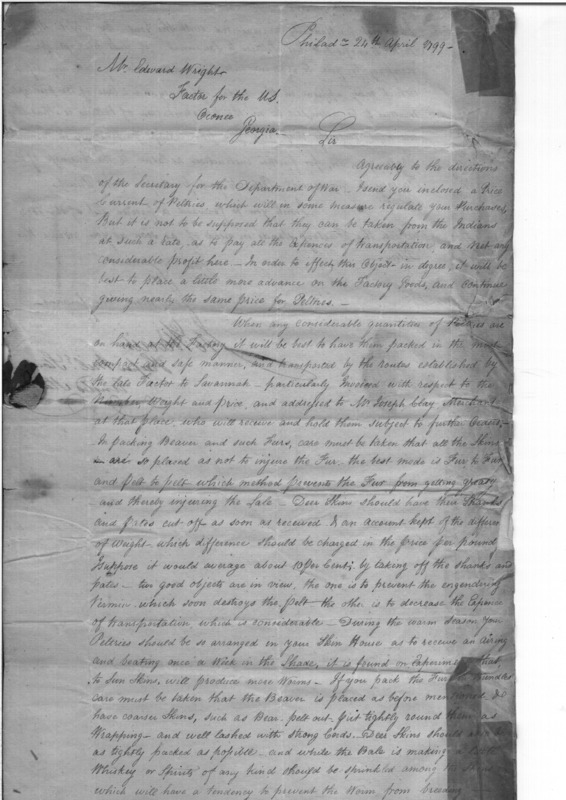 Philad.ª 24th April 1799-
Mr. Edward Wright
Factor for the U.S.
Oconee
Georgia.
Sir
Agreeably to the directions
of the Secretary for the Department of War. I send you inclosed a price
Current of Peltries which will in some measure regulate your Purchases.
But it is not to be supposed that they can be taken from the Indians
at such a rate, as to pay all the expences of transportation and nett any
considerable profit here. - In order to effect this Object in degree, it will be
best to place a little more advance on the Factory Goods, and continue
giving nearly the same price for Peltries. -
When any considerable quantities of are
on hand at the it will be best to have them packed in the most
compact and safe manner, and transported by the routes established by
the late Factor to Savannah - particularly Invoiced with respect to the
Number Weight and price, and addressed to Mr. Joseph Clay Merchant
at that place, who will receive and hold them subject to further Orders. -
In packing Beaver and such Furs, care must be taken that all the Skins
- are so placed as not to injure the Fur - the best mode is Fur to Fur
and pelt to pelt - which method prevents the Fur from getting greasy
and thereby injuring the Sale - Deer Skins should have their Shanks
and pates cut off as soon as received & an account kept of the differen
of Weight - which difference should be charged in the price per pound
Suppose it would average about 10 per Cent; by taking off the shanks and
pates - two good objects are in view, the one is to prevent the engendering
Vermin, which soon destroys the pelt - the other is to decrease the Expence
of transportation which is considerable - During the warm Season your
Peltries should be so arranged in your Skin House as to receive an airing
and beating once a Week in the Shade, it is found on Experiment that,
to Sun Skins, will produce more Worms - If you pack the Furs in bundles
care must be taken that the Beaver is placed as before mentioned &
have coarser Skins, such as Bear, pelt out. put tightly round them as
Wrapping - and well lashed with strong Cords. Deer Skins should also be
as tightly packed as possible - and while the Bale is making a little
Whiskey or Spirits of any kind should be sprinkled among the
which will have a tendency to prevent the Worm from breeding